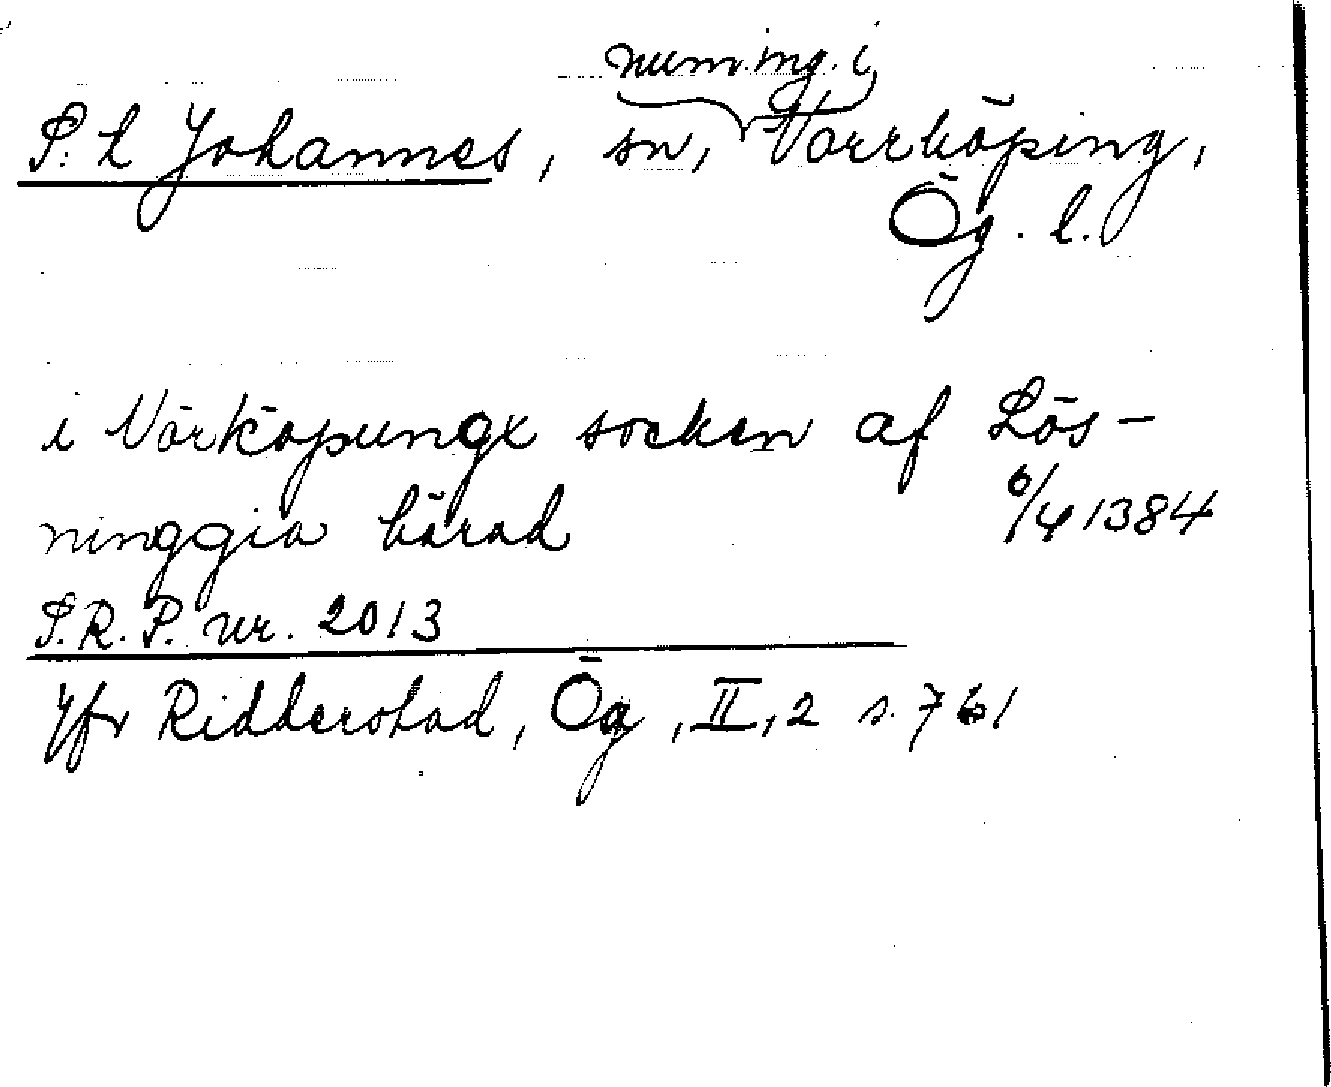 num. ing. i
S:t Johannes, sn, Norrköping,
Ög. l.
i Nörköpungx socken af Lös-
ninggia härad 6/4 1384
S.R.P. nr. 2013
Jfr Ridderstad, Ög, II, 2 s. 761